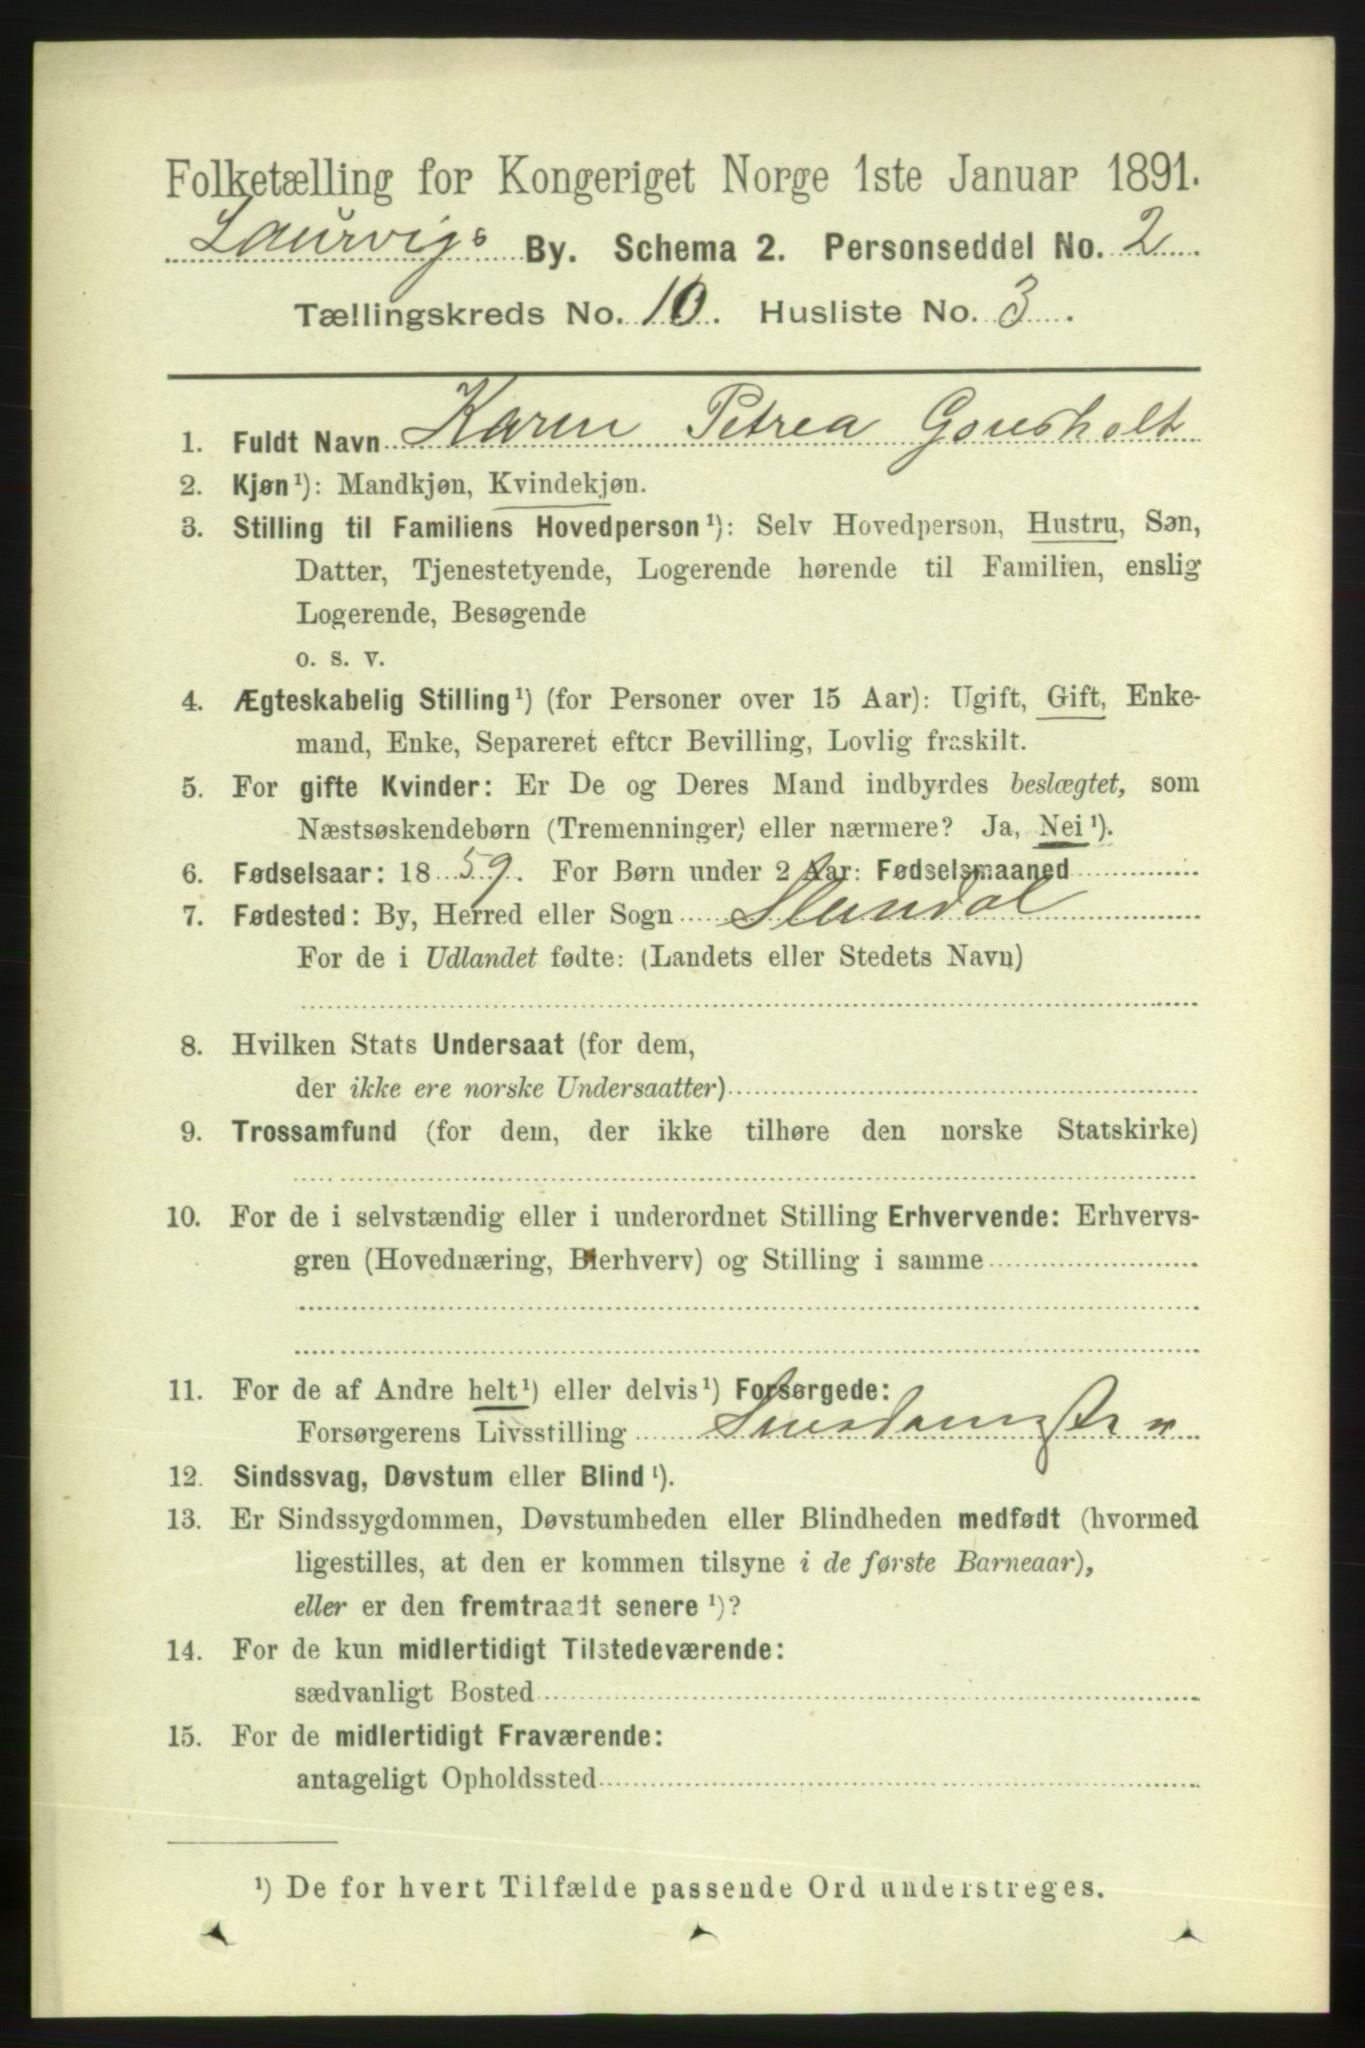 Folketælling for Kongeriget Norge 1ste Januar 1891.
Laurvigs By. Schema 2. Personseddel No. 2
Tællingskreds No. 10. Husliste No. 3.
1. Fuldt Navn Karen Petrea Gonsholt
2. Kjøn¹): Mandkjøn, Kvindekjøn.
3. Stilling til Familiens Hovedperson¹): Selv Hovedperson, Hustru, Søn,
Datter, Tjenestetyende, Logerende hørende til Familien, enslig
Logerende, Besøgende
o. s. v.
4. Ægteskabelig Stilling¹) (for Personer over 15 Aar): Ugift, Gift, Enke-
mand, Enke, Separeret efter Bevilling, Lovlig fraskilt.
5. For gifte Kvinder: Er De og Deres Mand indbyrdes beslægtet, som
Næstsøskendebørn (Tremenninger) eller nærmere? Ja, Nei¹).
6. Fødselsaar: 1859. For Børn under 2 Aar: Fødselsmaaned
7. Fødested: By, Herred eller Sogn Slemdal
For de i Udlandet fødte: (Landets eller Stedets Navn)
8. Hvilken Stats Undersaat (for dem,
der ikke ere norske Undersaatter)
9. Trossamfund (for dem, der ikke tilhøre den norske Statskirke)
10. For de i selvstændig eller i underordnet Stilling Erhvervende: Erhvervs-
gren (Hovednæring, Bierhverv) og Stilling i samme
11. For de af Andre helt¹) eller delvis¹) Forsørgede:
Forsørgerens Livsstilling
12. Sindssvag, Døvstum eller Blind¹).
13. Er Sindssygdommen, Døvstumheden eller Blindheden medfødt (hvormed
ligestilles, at den er kommen tilsyne i de første Barneaar),
eller er den fremtraadt senere¹)?
14. For de kun midlertidigt Tilstedeværende:
sædvanligt Bosted
15. For de midlertidigt Fraværende:
antageligt Opholdssted
¹) De for hvert Tilfælde passende Ord understreges.